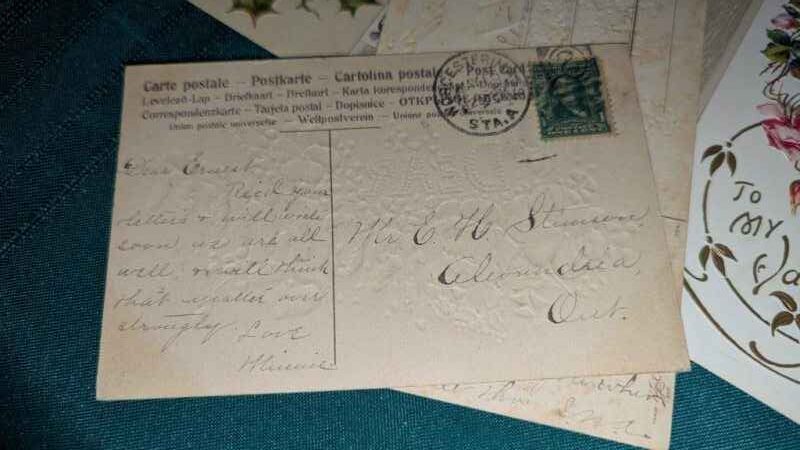 Carte postale – Postkarte – Cartolina postal – Post Car
Levelező-Lap – Briefkaart – Brefkort – Karta korespondencyjna
Correspondenzkarte – Tarjeta postal – Dopisnice – ОТКР
Union postale universelle – Weltpostverein – Union postale universelle
WORCESTER, MA
STA. A
Dear Ernest
Rec'd your
letters & will write
soon we are all
well, & will think
that matter over
strongly. Love
Minnie
Mr E. H. Stimson
Alexandria,
Ont.
TO
MY